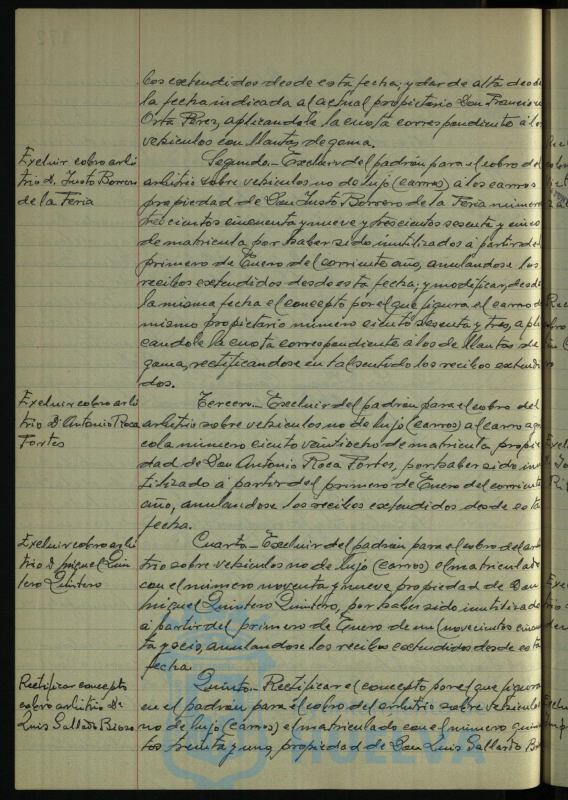 los extendidos desde esta fecha; y dar de alta desde
la fecha indicada al actual propietario Don Francisco
Orta Pérez, aplicandole la cuota correspondiente a los
vehiculos con llantas de goma.
Excluir cobro arbi
trio D. Justo Borrero
de la Feria
Segundo.- Excluir del padrón para el cobro del
arbitrio sobre vehiculos no de lujo (carros) a los carros
propiedad de Don Justo Borrero de la Feria numeros
trescientos cincuenta y nueve y trescientos sesenta y cinco
de matricula por haber sido inutilizados a partir del
primero de Enero del corriente año, anulandose los
recibos extendidos desde esta fecha; y modificar, desde
la misma fecha el concepto por el que figura el carro del
mismo propietario número ciento sesenta y tres, apli
candole la cuota correspondiente a los de llantas de
goma, rectificandose en tal sentido los recibos extendi
dos.
Excluir cobro arbi
trio D. Antonio Roca
Fortes
Tercero.- Excluir del padrón para el cobro del
arbitrio sobre vehiculos no de lujo (carros) al carro agri
cola número ciento veintiocho de matricula propie
dad de Don Antonio Roca Fortes, por haber sido inu
tilizado a partir del primero de Enero del corriente
año, anulandose los recibos extendidos desde esta
fecha.
Excluir cobro arbi
trio D. Miguel Quin
tero Quintero
Cuarto.- Excluir del padrón para el cobro del arbi
trio sobre vehiculos no de lujo (carros) el matriculado
con el número noventa y nueve propiedad de Don
Miguel Quintero Quintero, por haber sido inutilizado
a partir del primero de Enero de mil novecientos cincuen
ta y seis, anulandose los recibos extendidos desde esta
fecha.
Rectificar concepto
cobro arbitrio D.
Luis Gallardo
Quinto.- Rectificar el concepto por el que figura
en el padrón para el cobro del arbitrio sobre vehiculos
no de lujo (carros) el matriculado con el número quinien
tos treinta y uno, propiedad de Don Luis Gallardo
HUELVA